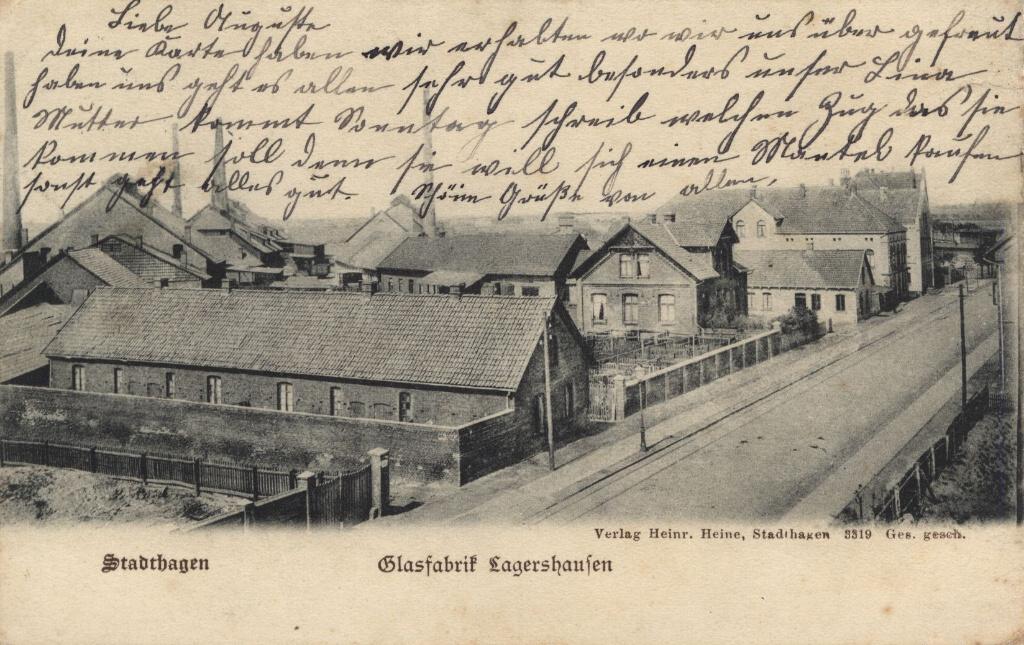 Liebe Auguste
deine Karte haben wir erhalten wo wir uns über gefreut
haben uns geht es allen sehr gut besonders unser Lina
Mutter kommt Sonntag schreib welchen Zug das sie
kommen soll denn sie will sich einen Mantel kaufen
sonst geht alles gut. Schöne Grüße von allen,
Verlag Heinr. Heine, Stadthagen 3319 Ges. gesch.
Stadthagen
Glasfabrik Lagershausen